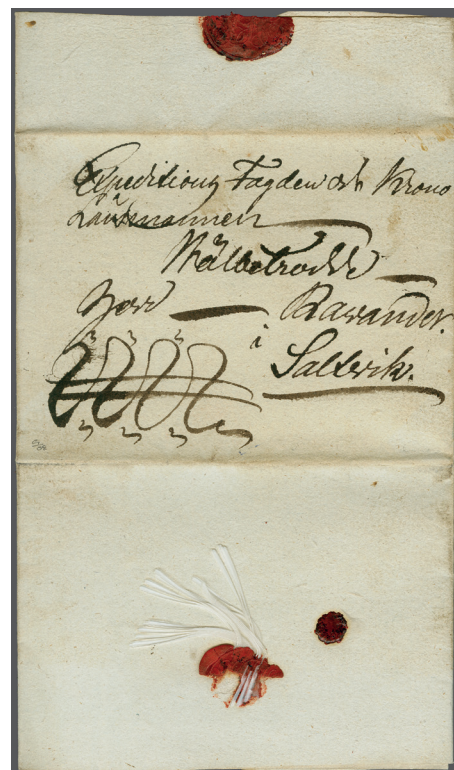 Expeditions Fogden och Krono
Länsmannen
Wälbetrodde
Herr Rasander.
i
Saltvik.